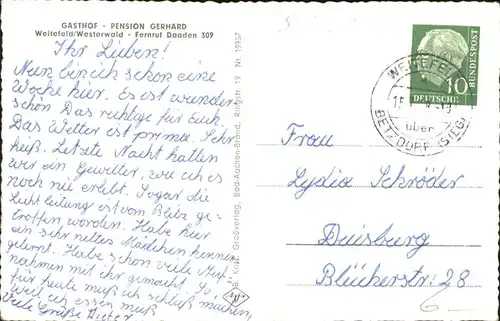 GASTHOF - PENSION GERHARD
Weitefeld/Westerwald - Fernruf Daaden 309
Ihr Lieben!
Nun bin ich schon eine
Woche hier. Es ist wunder-
schön Das richtige für Euch.
Das Wetter ist prima. Sehr
heiß. Letzte Nacht hatten
wir ein Gewitter, wo ich es
noch nie erlebt. Sogar die
Lichtleitung ist vom Blitz ge-
troffen worden. Habe hier
ein sehr nettes Mädchen kennen
gelernt. Habe schon viele Auf-
nahmen mit ihr gemacht. So
für heute muß ich schluß machen,
weil ich essen muß
Viele Grüße Dieter
Großverlag, Bad-Aachen-Brand, Ringstr. 19 Nr. 19957
WEITEFELD
15
über
BETZDORF (SIEG)
10
DEUTSCHE
BUNDESPOST
Frau
Lydia Schröder
Duisburg
Blücherstr. 28